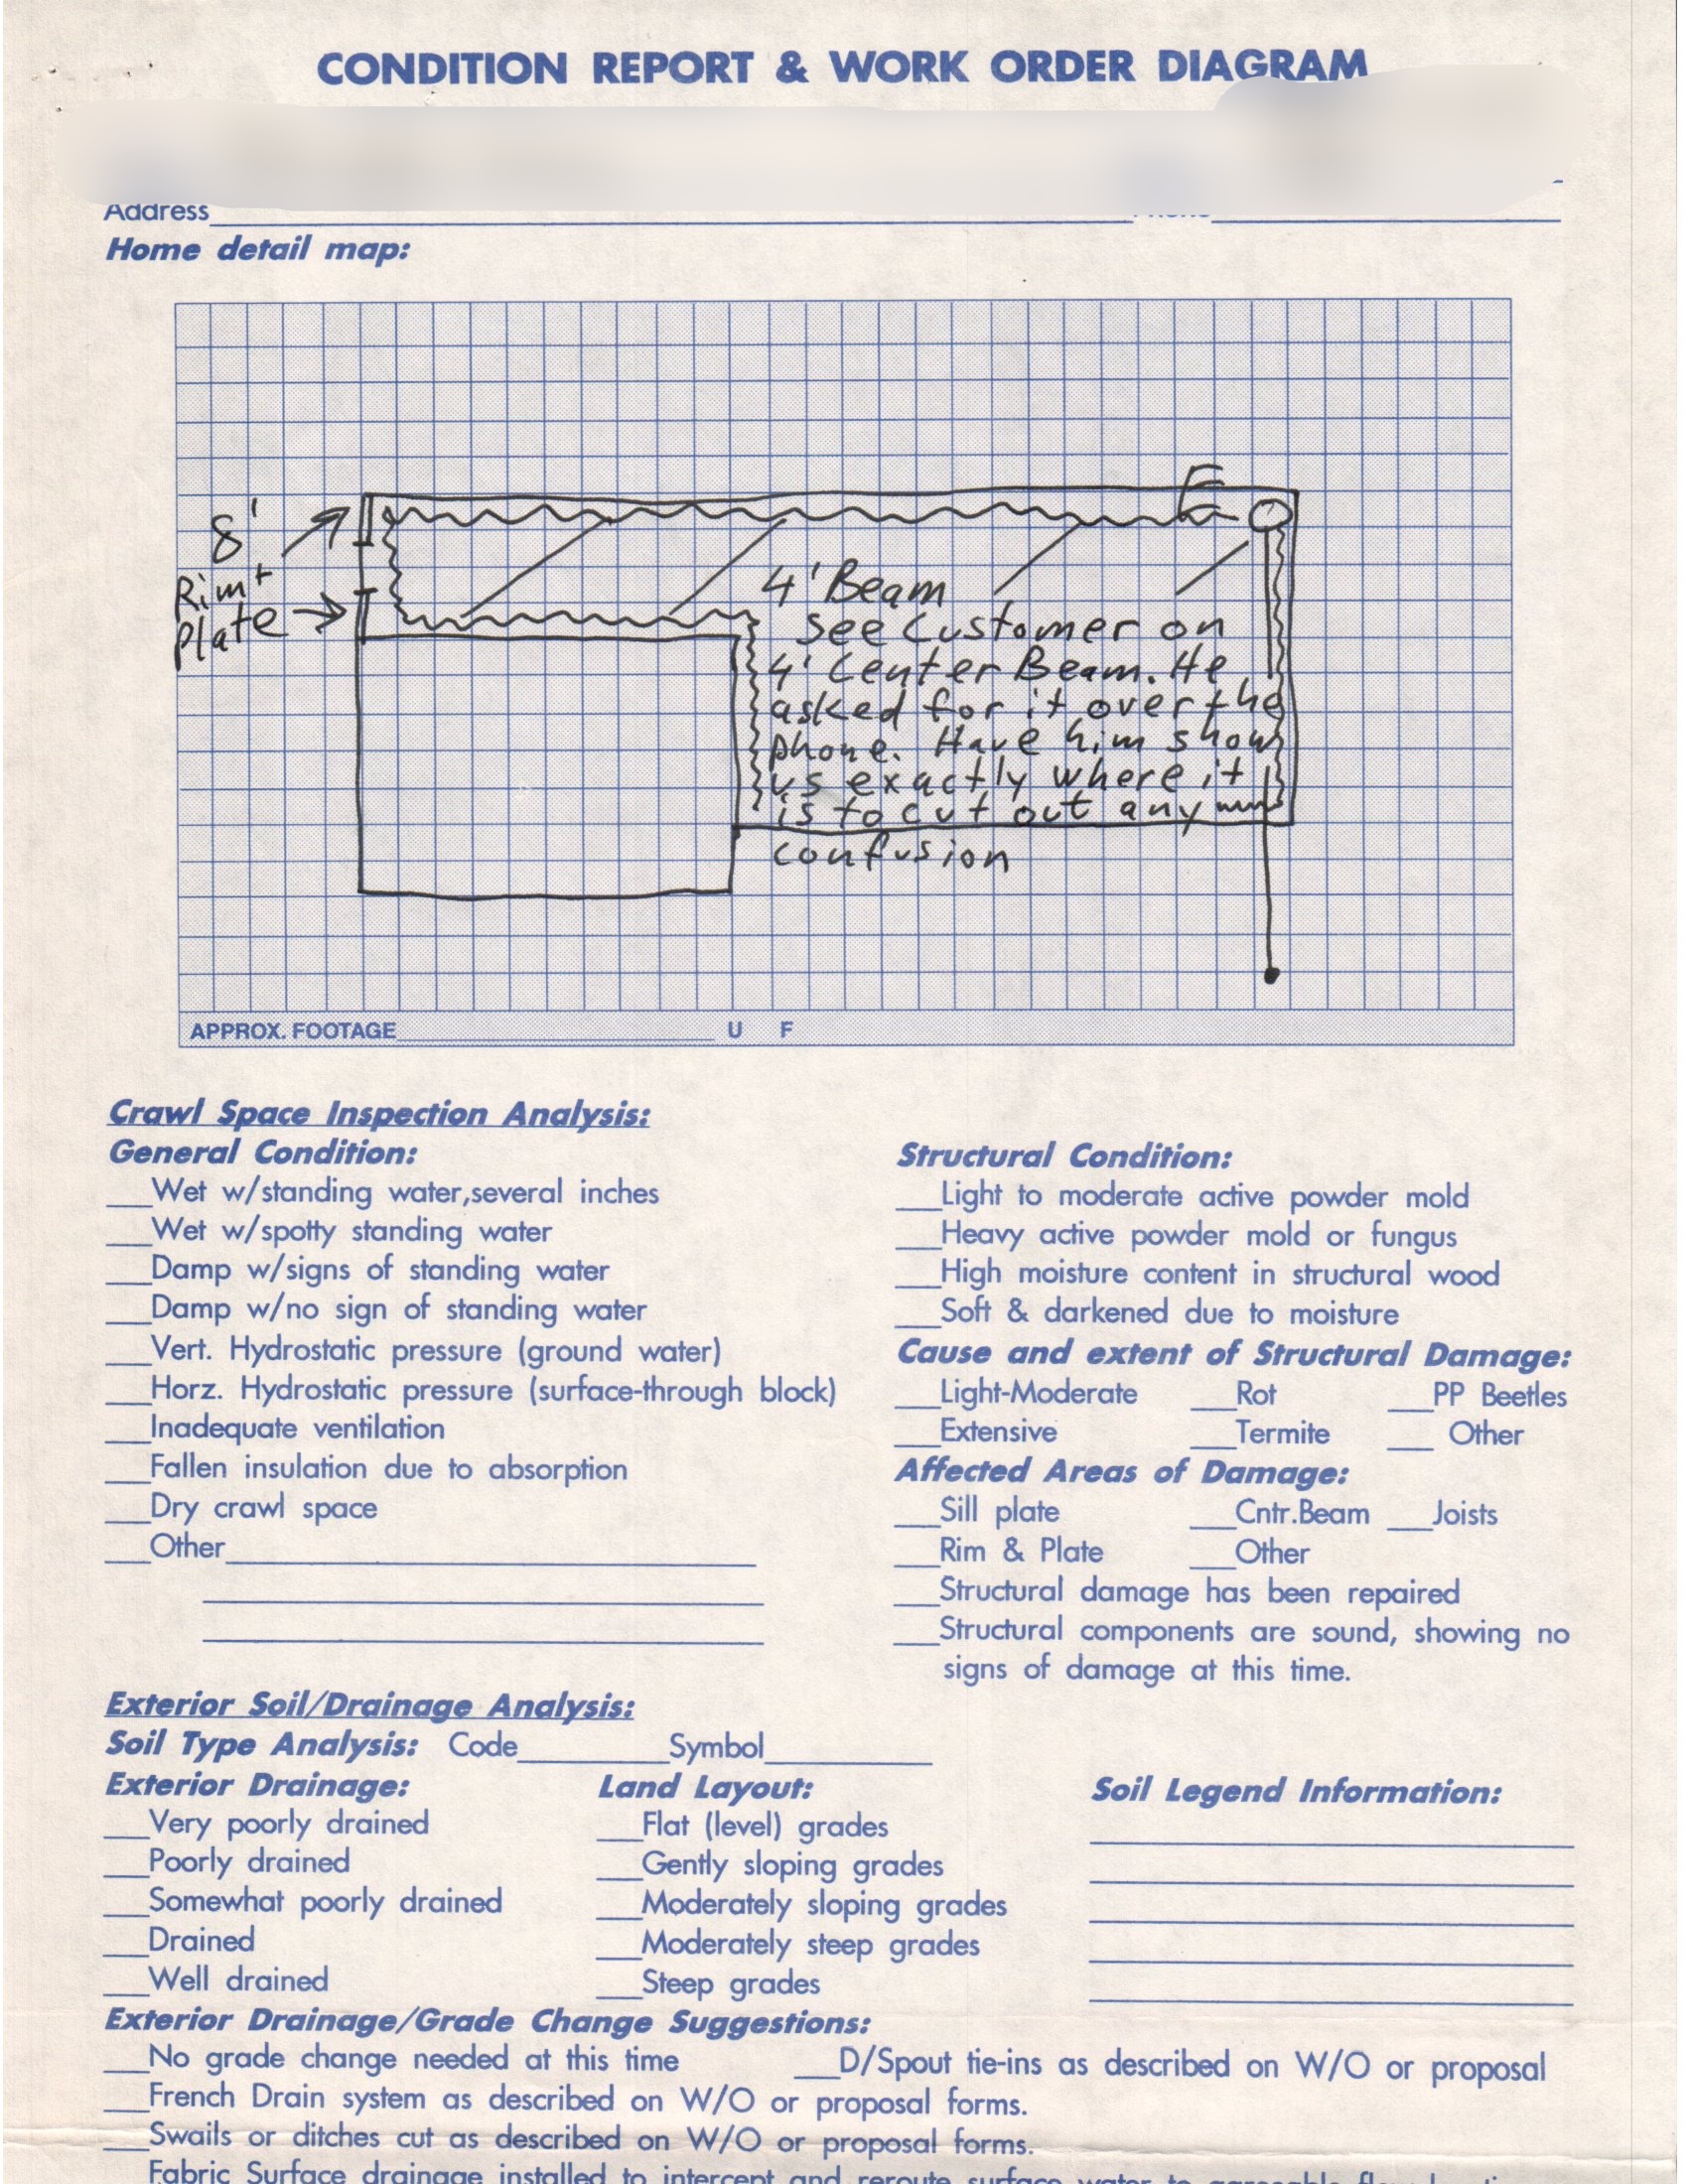 CONDITION REPORT & WORK ORDER DIAGRAM
Address
Home detail map:
8'
Rim +
Plate
4' Beam
See Customer on
4' Center Beam. He
asked for it over the
phone. Have him show
us exactly where it
is to cut out any
confusion
APPROX. FOOTAGE U F
Crawl Space Inspection Analysis:
General Condition:
___Wet w/standing water,several inches
___Wet w/spotty standing water
___Damp w/signs of standing water
___Damp w/no sign of standing water
___Vert. Hydrostatic pressure (ground water)
___Horz. Hydrostatic pressure (surface-through block)
___Inadequate ventilation
___Fallen insulation due to absorption
___Dry crawl space
___Other
Structural Condition:
___Light to moderate active powder mold
___Heavy active powder mold or fungus
___High moisture content in structural wood
___Soft & darkened due to moisture
Cause and extent of Structural Damage:
___Light-Moderate ___Rot ___PP Beetles
___Extensive ___Termite ___ Other
Affected Areas of Damage:
___Sill plate ___Cntr.Beam ___Joists
___Rim & Plate ___Other
___Structural damage has been repaired
___Structural components are sound, showing no
signs of damage at this time.
Exterior Soil/Drainage Analysis:
Soil Type Analysis: Code________Symbol________
Exterior Drainage:
___Very poorly drained
___Poorly drained
___Somewhat poorly drained
___Drained
___Well drained
Land Layout:
___Flat (level) grades
___Gently sloping grades
___Moderately sloping grades
___Moderately steep grades
___Steep grades
Soil Legend Information:
Exterior Drainage/Grade Change Suggestions:
___No grade change needed at this time ___D/Spout tie-ins as described on W/O or proposal
___French Drain system as described on W/O or proposal forms.
___Swails or ditches cut as described on W/O or proposal forms.
Fabric Surface drainage installed to intercept and reroute surface water to agreeable flow